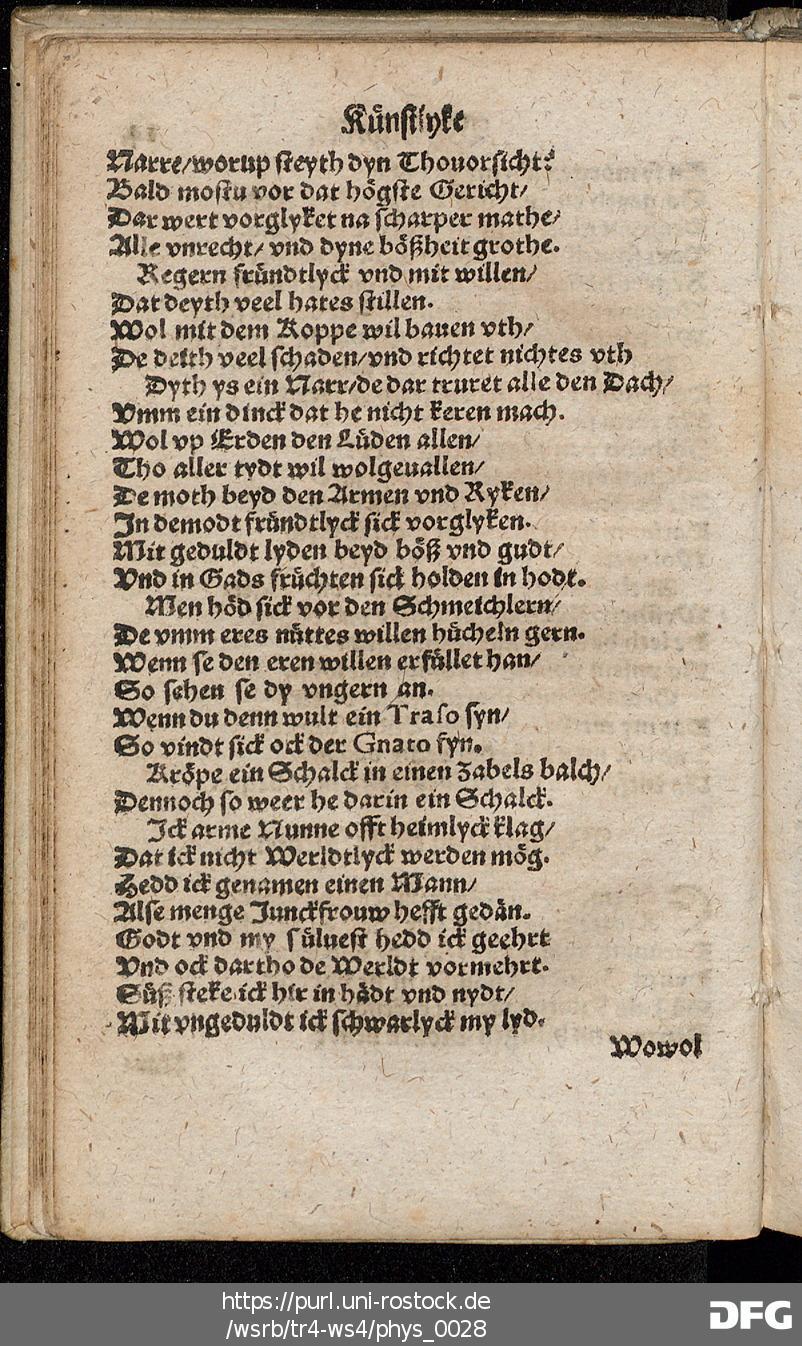 Künstlyke
Narre/worup steyth dyn Thouorsicht?
Bald mostu vor dat högste Gericht/
Dar wert vorglyket na scharper mathe/
Alle vnrecht/ vnd dyne bößheit grothe.
Regern fründtlyck vnd mit willen/
Dat deyth veel hates stillen.
Wol mit dem Koppe wil bauen vth/
De deith veel schaden/vnd richtet nichtes vth
Dyth ys ein Narr/de dar truret alle den Dach/
Vmm ein dinck dat he nicht keren mach.
Wol vp Erden den Lüden allen/
Tho aller tydt wil wolgeuallen/
De moth beyd den Armen vnd Ryken/
In demodt fründtlyck sick vorglyken.
Mit geduldt lyden beyd böß vnd gudt/
Vnd in Gads früchten sick holden in hodt.
Men höd sick vor den Schmeichlern/
De vmm eres nüttes willen hücheln gern.
Wenn se den eren willen erfüllet han/
So sehen se dy vngern an.
Wenn du denn wult ein Traso syn/
So vindt sick ock der Gnato syn.
Kröpe ein Schalck in einen Zabels balch/
Dennoch so weer he darin ein Schalck.
Ick arme Nunne offt heimlyck klag/
Dat ick nicht Werldtlyck werden mög.
Hedd ick genamen einen Mann/
Alse menge Junckfrouw hefft gedän.
Godt vnd my süluest hedd ick geehrt
Vnd ock dartho de Werldt vormehrt.
Süß steke ick hir in hädt vnd nydt/
Mit vngeduldt ick schwarlyck my lyd.
Wowol
https://purl.uni-rostock.de
/wsrb/tr4-ws4/phys_0028
DFG